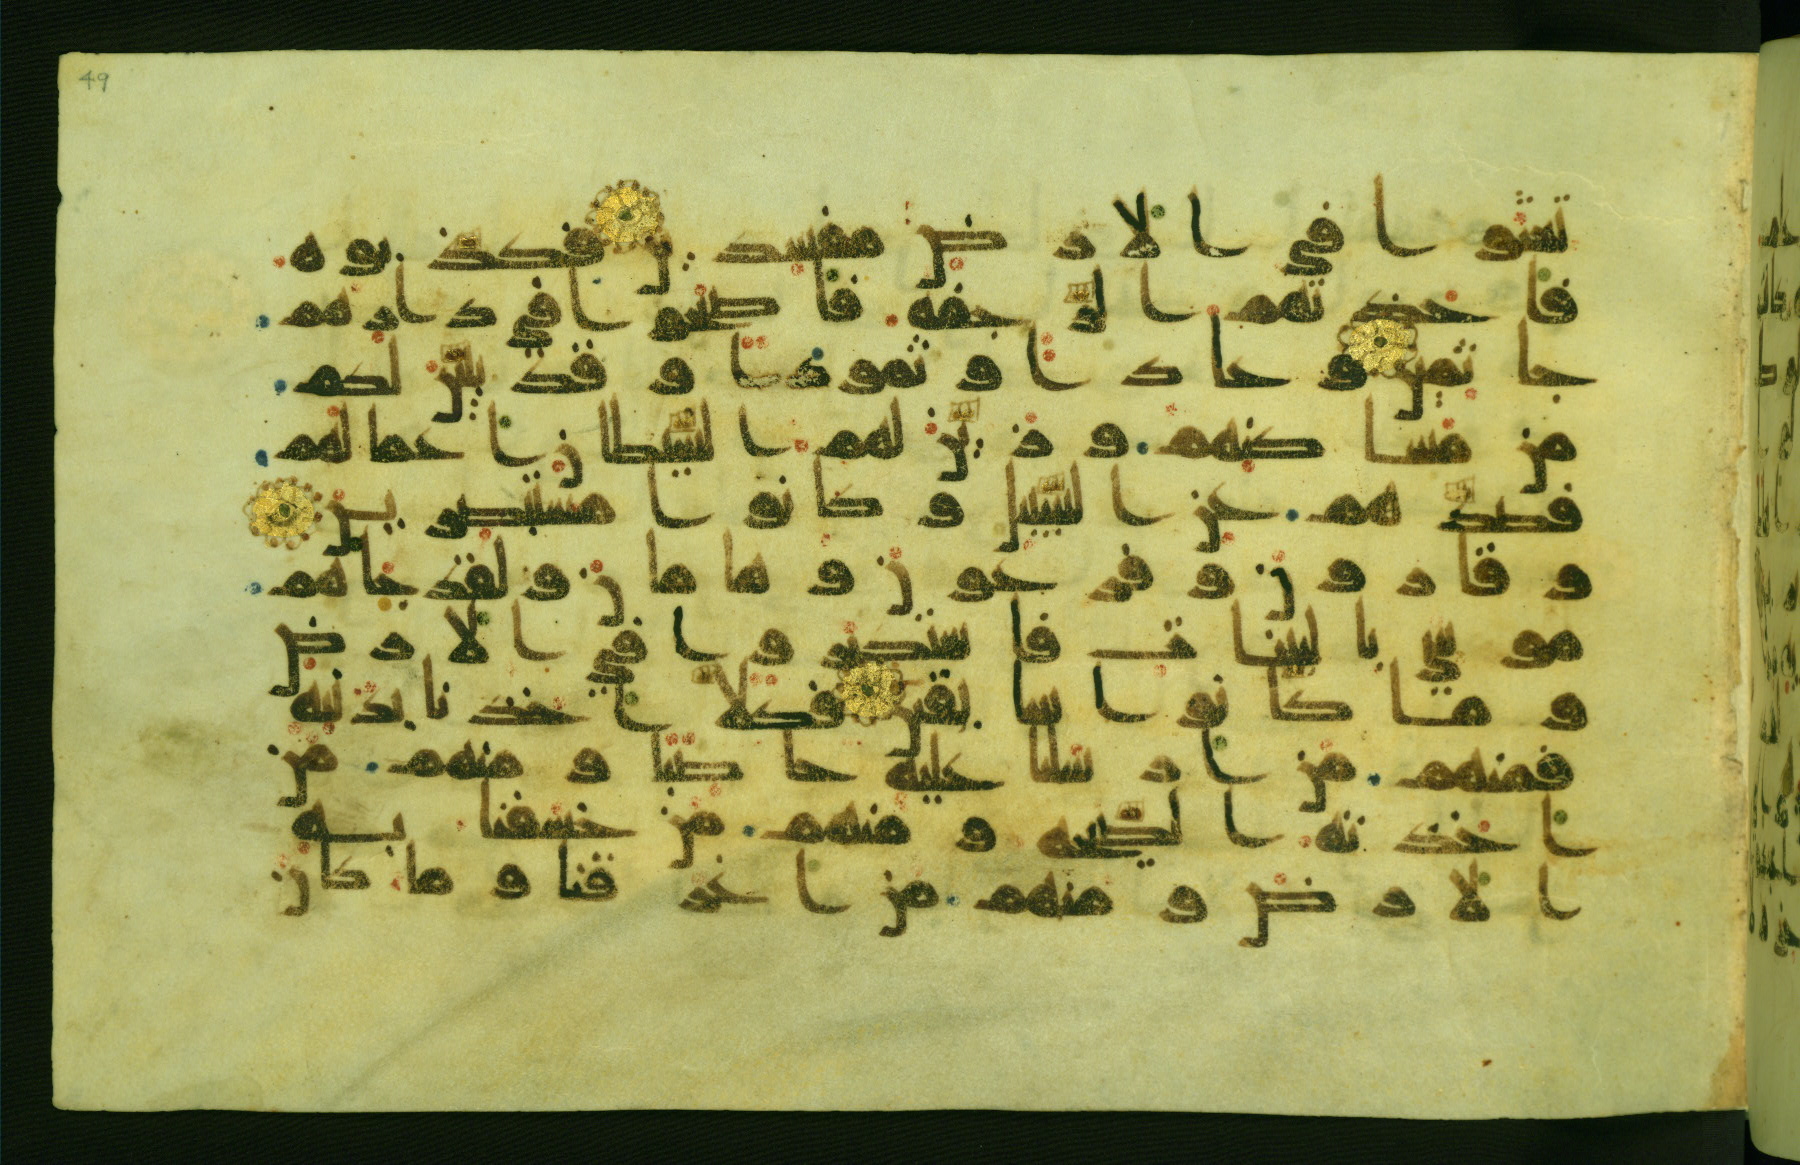 49
تعثوا في الارض مفسدين فكذبوه
فاخذتهم الرجفة فاصبحوا في دارهم
جاثمين وعادا وثمودا وقد تبين لكم
من مساكنهم وزين لهم الشيطان اعمالهم
فصدهم عن السبيل وكانوا مستبصرين
وقارون وفرعون وهامان ولقد جاهم
موسى بالبينات فاستكبروا في الارض
وما كانوا سابقين فكلا اخذنا بذنبه
فمنهم من ارسلنا عليه حاصبا ومنهم من
اخذته الصيحة ومنهم من خسفنا به
الارض ومنهم من اغرقنا وما كان